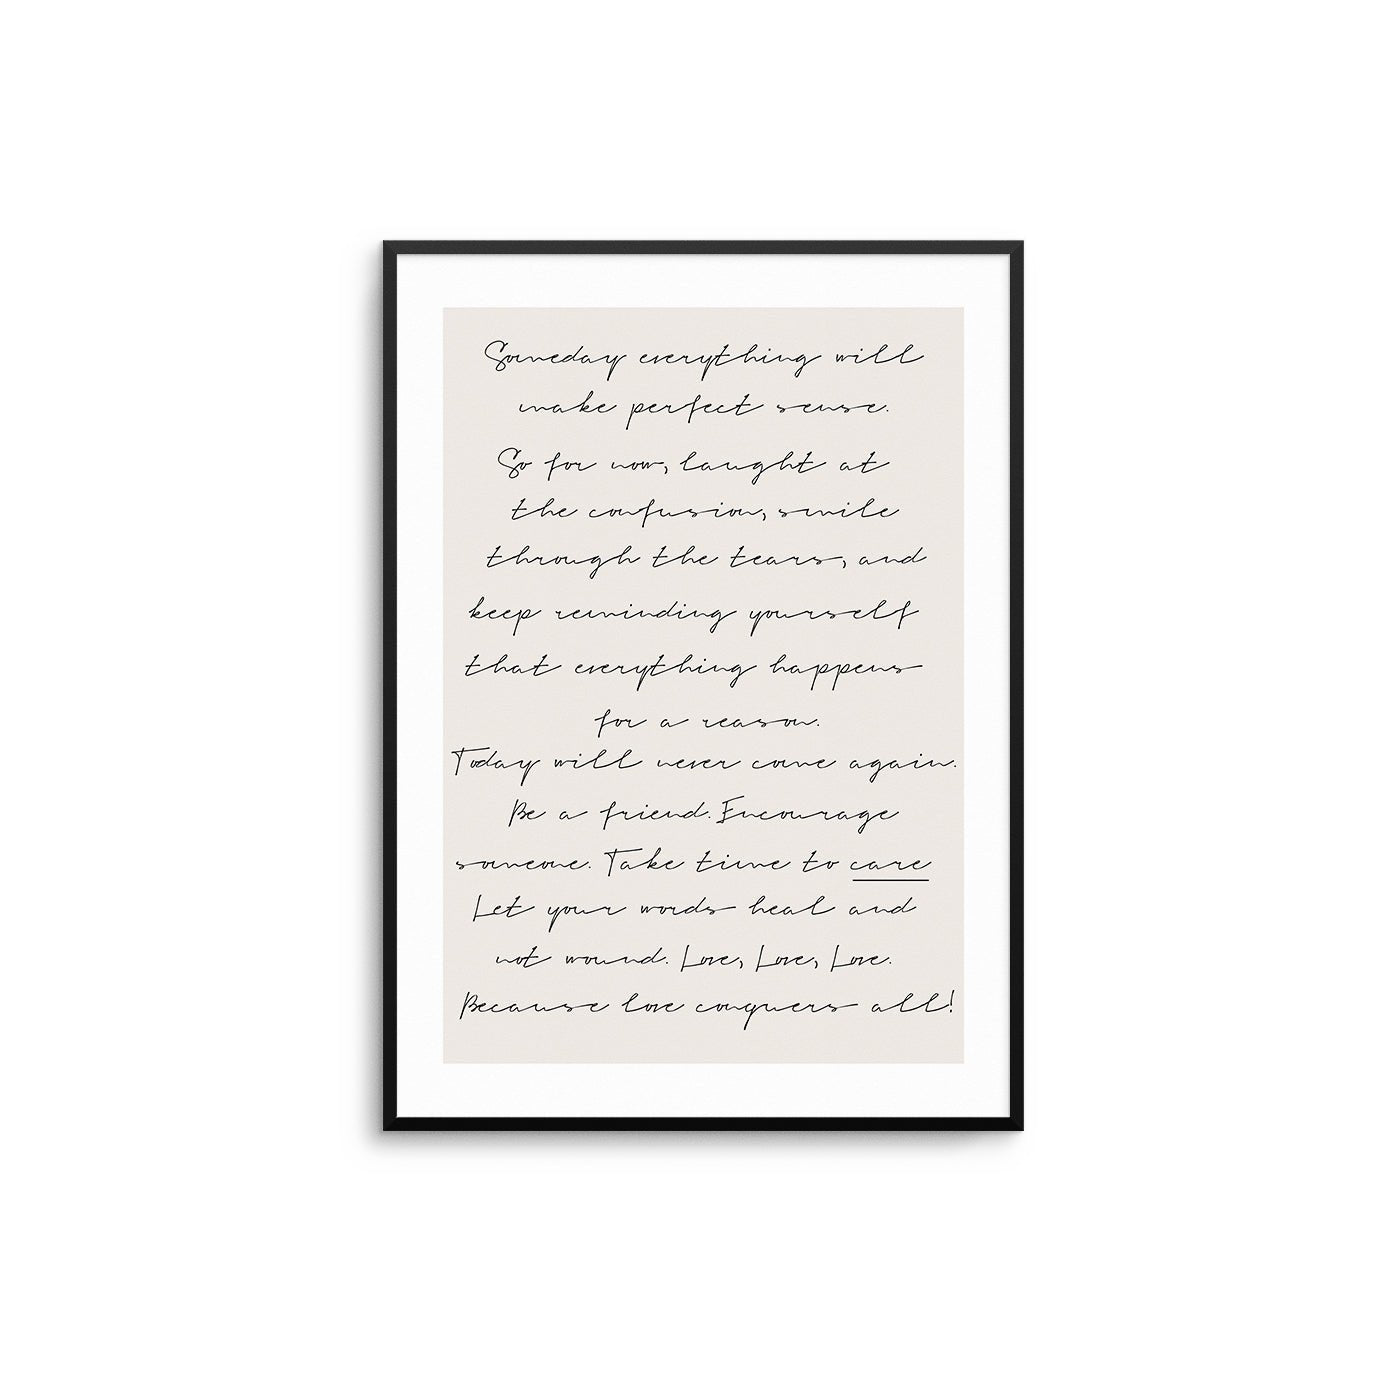 Someday everything will
make perfect sense.
So for now, laught at
the confusion, smile
through the tears, and
keep reminding yourself
that everything happens
for a reason.
Today will never come again.
Be a friend. Encourage
someone. Take time to care
Let your words heal and
not wound. Love, Love, Love.
Because love conquers all!